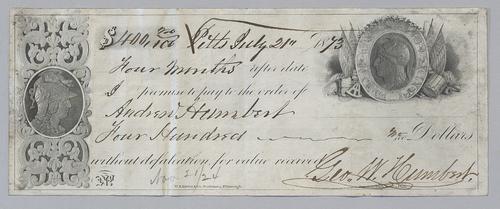 $400, no/100 Pitts July 21st 1873
Four months after date
I promise to pay to the order of
Andrew Humbert
Four Hundred no/100 Dollars
without defalcation for value received
Nov 21/24
Geo. W. Humbert.